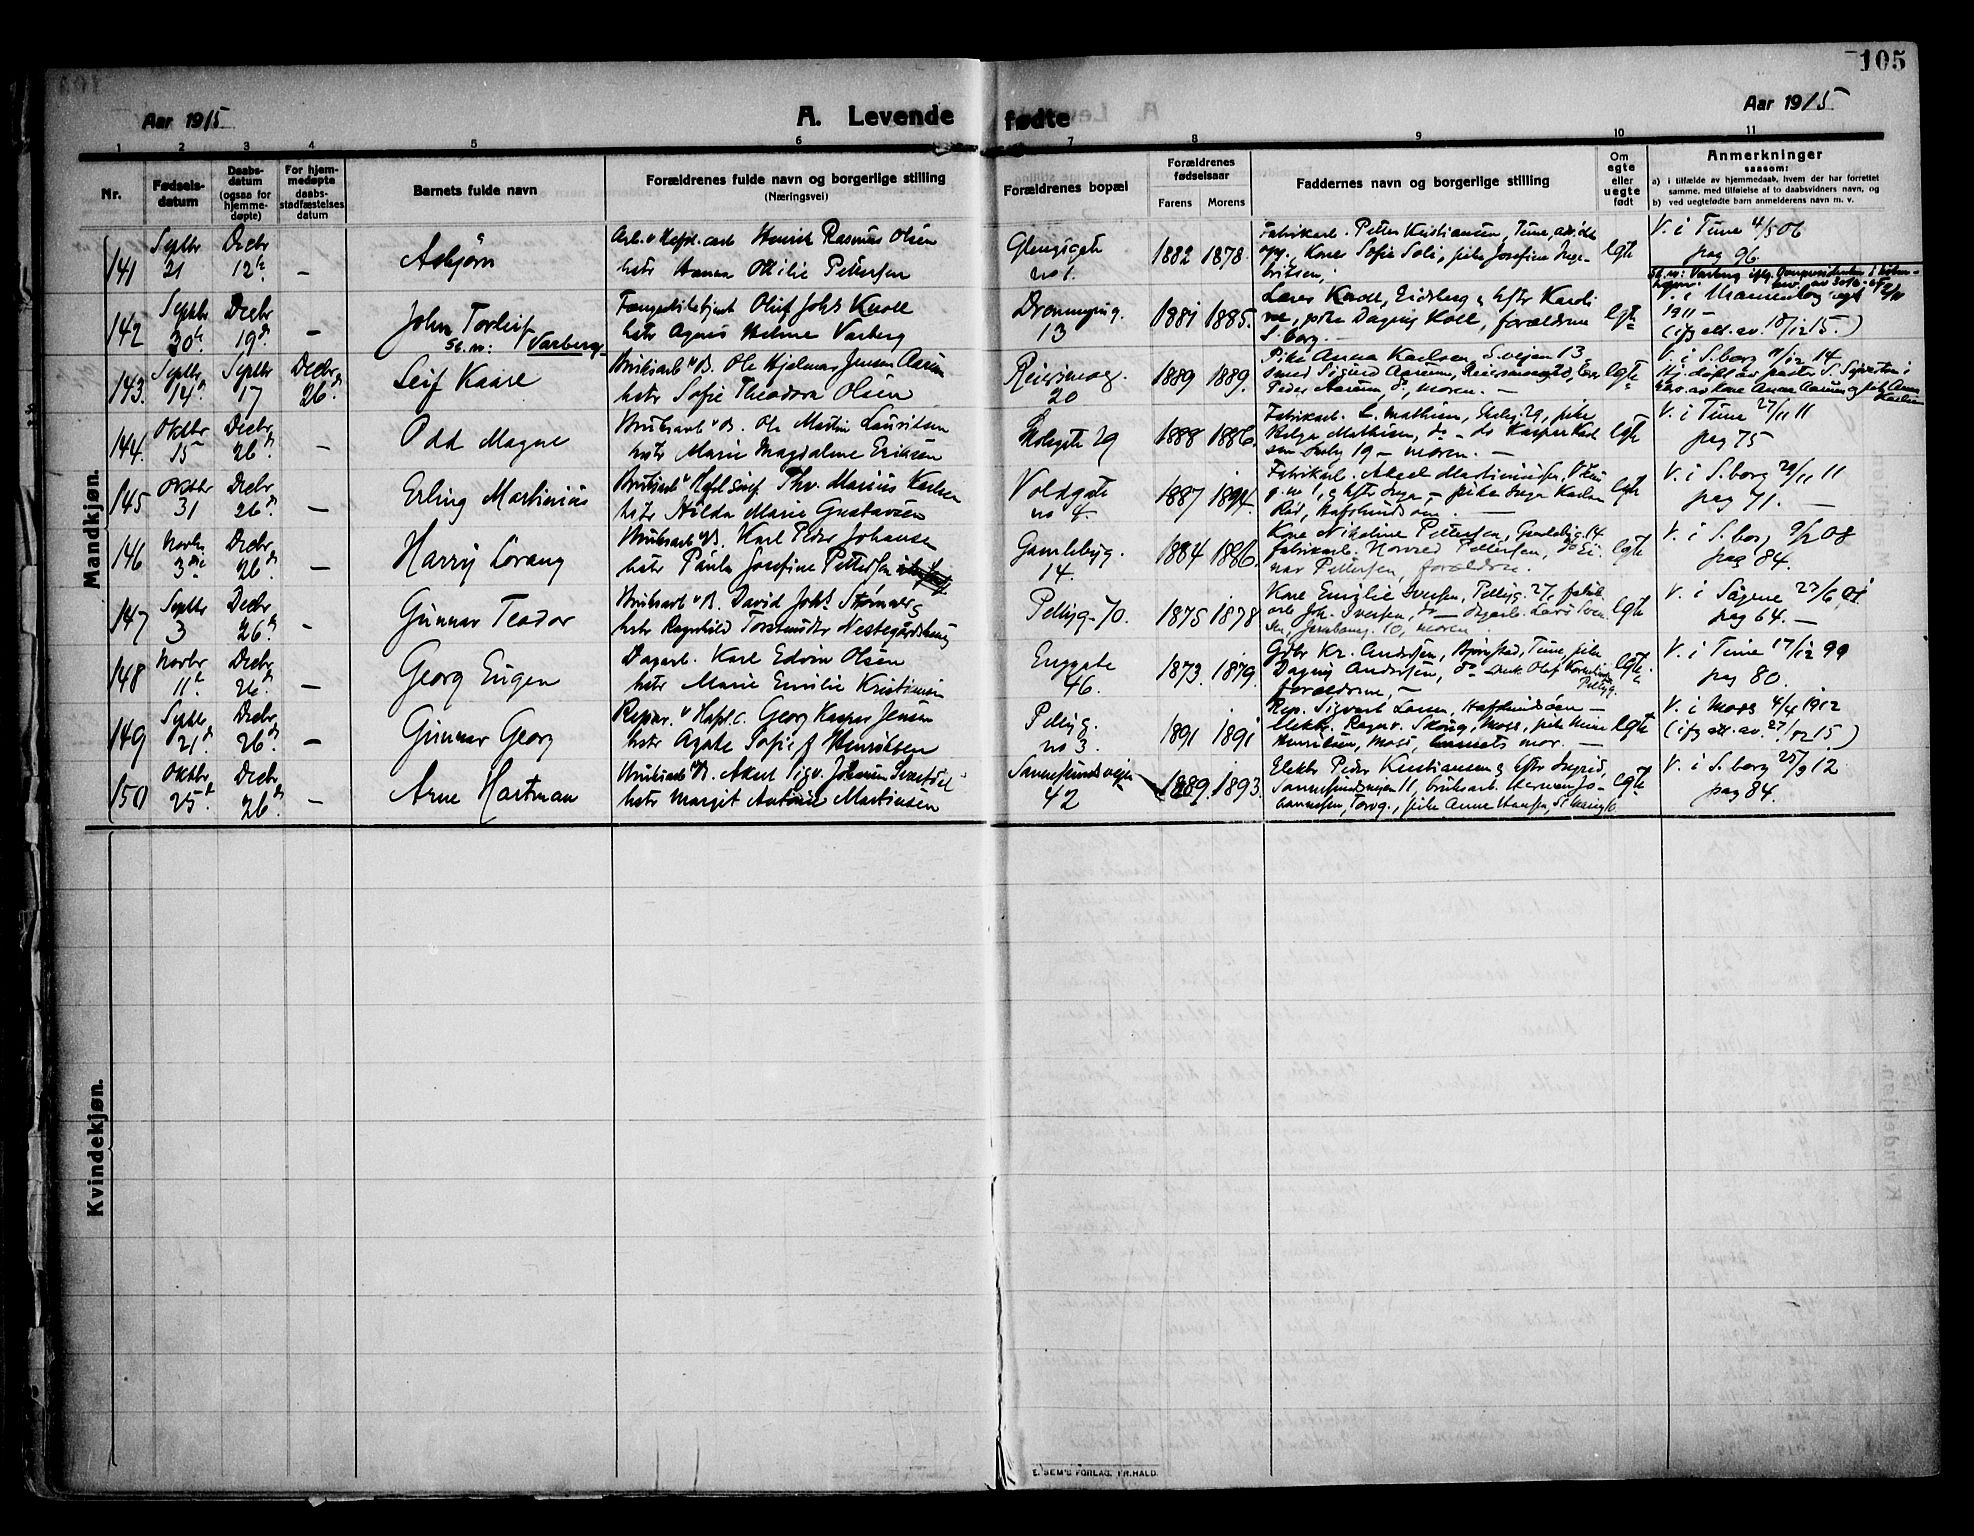 105
Aar 1915
A. Levende fødte
Aar 1915
1 2 3 4 5 6 7 8 9 10 11
Nr.
Fødsels-
datum
Daabs-
datum
(ogsaa for
hjemme-
døpte)
For hjem-
medøpte
daabs-
stadfæstelses
datum
Barnets fulde navn
Forældrenes fulde navn og borgerlige stilling
(Næringsvei)
Forældrenes bopæl
Forældrenes
fødselsaar
Farens Morens
Faddernes navn og borgerlige stilling
Om
egte
eller
uegte
født
Anmerkninger
saasom:
a) i tilfælde av hjemmedaab, hvem der har forrettet
samme, med tilføielse af to daabsvidners navn, og
b) ved uegtefødte barn anmelderens navn m. v.
Mandkjøn.
141
Septbr
21
Decbr
12te
–
Asbjørn
Henrik Rasmus Olsen
hstr Hanna Othilie Pettersen
Glengsgate
no 1.
1882 1878.
Fabrikarb. Petter Kristiansen, Tune,
Kone Sofie Soli, pike Josefine Inge-
britsen,
egte
V. i Tune 4/5 06
pag 96.
142
Septbr
30te
Decbr
19de
–
John Torleif
Sl. n: Varberg
Fængselsbetjent Oluf Johs Knoll
hstr Agnes Helene Varberg
Dronningsg.
13
1881 1885.
Knoll, Eidsberg
pike Dagny Koll, forældrene
S.borg.
egte
V. i Uranienborg
1911 –
(ifg att. av. 18/12 15.)
143.
Septbr
14de
Septbr
17
Decbr
26de
Leif Kaare
Bruksarb v B. Ole Hjelmar Jensen Aarum
hstr Sofie Theodora Olsen
Reiersmog.
20
1889 1889.
Pike Anna Karlsen, S.veien 13,
smed Sigurd Aarum, Reiersmog 20,
Peder Aarum, do, moren. –
egte
V. i S.borg 11/12 14
Hj.døpt av pastor S. Sivertsen i
nærv. av kone Anna Aarum og pike Anna
Karlsen
144.
Oktbr
15
Decbr
26de
–
Odd Magne
Bruksarb v B. Ole Martin Lauritsen
hstr Marie Magdalene Eriksen
Skolegate 29
1888 1886.
Fabrikarb. L. Mathisen, 29, pike
Helga Mathisen, do – do Kasper Karl
sen 19 – moren. –
egte
V. i Tune 27/11 11
pag 75
145
Oktbr
31
Decbr
26de
–
Erling Martinius
Bruksarb v Hafsl Thv. Marius Karlsen
hstr Hilda Marie Gustavsen
Voldgate
no 4.
1887 1894.
Fabrikarb. Aksel Martiniussen,
g. no 1, og hstr Inga – pike Inga Karlsen
Hafslundsøen. –
egte
V. i S.borg 29/11 11
pag 71. –
146
Novbr
3die
Decbr
26de
–
Harry Lorang
Bruksarb v B. Karl Peder Johansen
hstr Paula Josefine Pettersen
Gamlebyg.
14.
1884 1886.
Kone Nikoline Pettersen, Gamlebyg. 14
fabrikarb. Norvad Pettersen, do Ei-
nar Pettersen, forældrene.
egte
V. i S.borg 9/2 08
pag 84.
147
Septbr
3
Decbr
26de
–
Gunnar Teodor
Bruksarb v B. David Johs Strømnes
hstr Ragnhild Torstensdtr Nestegårdshaug
Pellyg 70.
1875 1878
Kone Emilie Iversen, Pellyg. 27, fabrik
arb. Joh. Iversen, do – dagarb. Lars Iver-
sen, Jernbaneg. 10, moren
egte
V. i Sagene 23/6 01
pag 64. –
148
Novbr
11te
Decbr
26de
–
Georg Eugen
Dagarb. Karl Edvin Olsen
hstr Marie Emilie Kristiansen
Enggate
46.
1873. 1879.
Gdbr Kr. Andersen, Bjørnstad, Tune, pike
Dagny Andersen, do Olaf Karelius
Pellyg.
forældrene, –
egte.
V. i Tune 17/12 99
pag 80.
149
Septbr
21de
Decbr
26de
–
Gunnar Georg
Repar. v Hafsl. c. Georg Kasper Jensen
hstr Agate Sofie f Henriksen
Pellyg.
no 3.
1891 1891
Rep. Sigvart Lunn, Hafslundsøen –
elektr. Ragnv. Skoug, Moss, pike
Henriksen, Moss, barnets mor. –
egte
V. i Moss 4/4 1912
(ifg att. av. 27/12 15.)
150
Oktbr
25de
Decbr
26de
–
Arne Hartman
Bruksarb v B. Aksel Sigv. Johansen
hstr Margit Antonie Martinsen
Sannesundsveien
42
1889. 1893.
Elektr Peder Kristiansen og hstr Ingrid,
Sannesundsveien 11, bruksarb. Herman Jo-
hannesen, Torvg., pike Anna Hansen,
egte
V. i S.borg 25/9 12
pag 84.
Kvindekjøn.
E. SEM'S FORLAG. FR.HALD.